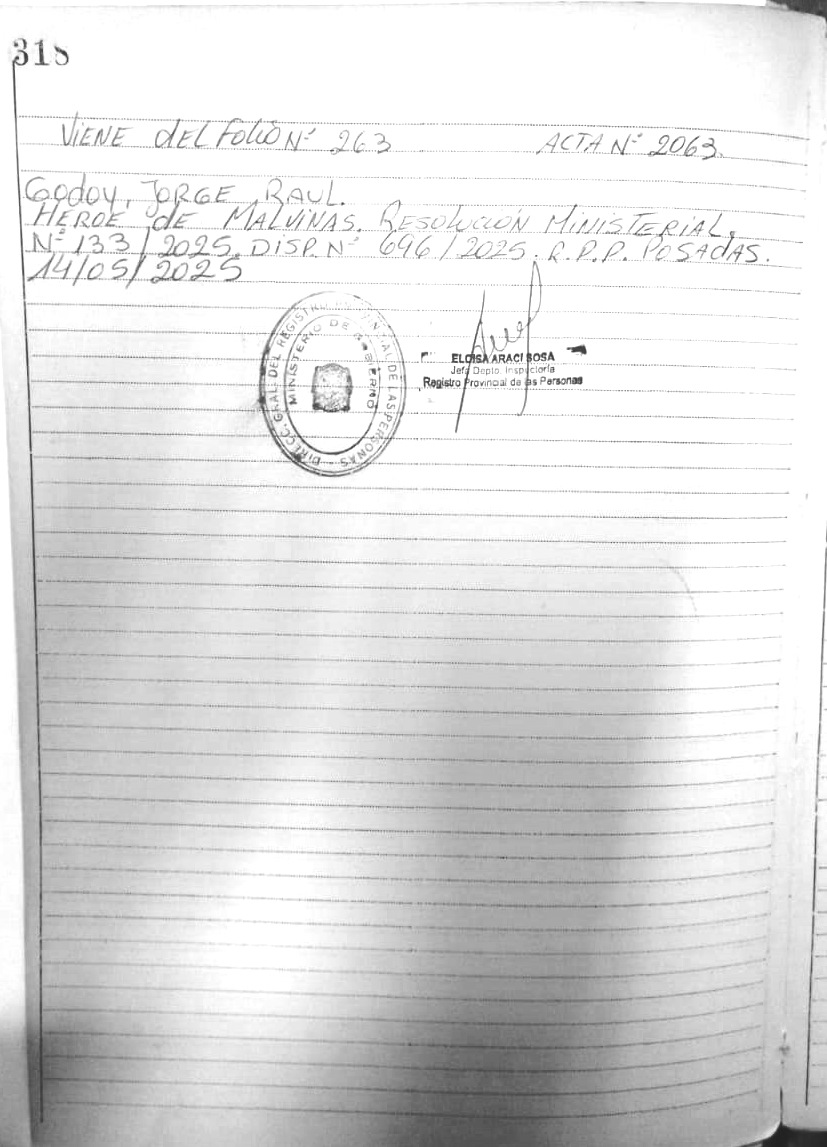 318
VIENE dEL Folio N° 263 ACTA N° 2063.
Godoy, JORGE RAUL.
HEROE de MALVINAS. RESOLUCIÓN MINISTERIAL,
N° 133/2025. DISP. N° 696/2025. R.P.P. POSADAS.
14/05/2025
DIRECC. GRAL. DEL REGISTRO PROVINCIAL DE LAS PERSONAS
MINISTERIO DE GOBIERNO
ELOISA ARACI SOSA
Jefa Depto. Inspectoría
Registro Provincial de las Personas